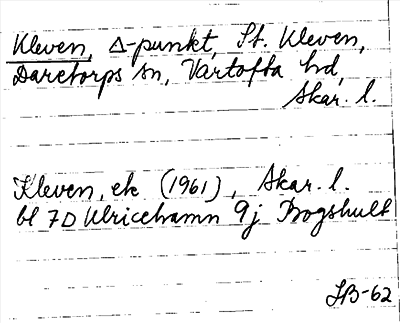 Kleven, Δ-punkt, St. Kleven,
Daretorps sn, Vartofta hd,
Skar. l.
Kleven, ek (1961), Skar. l.
bl 7D Ulricehamn 9j Bogshult
IB-62